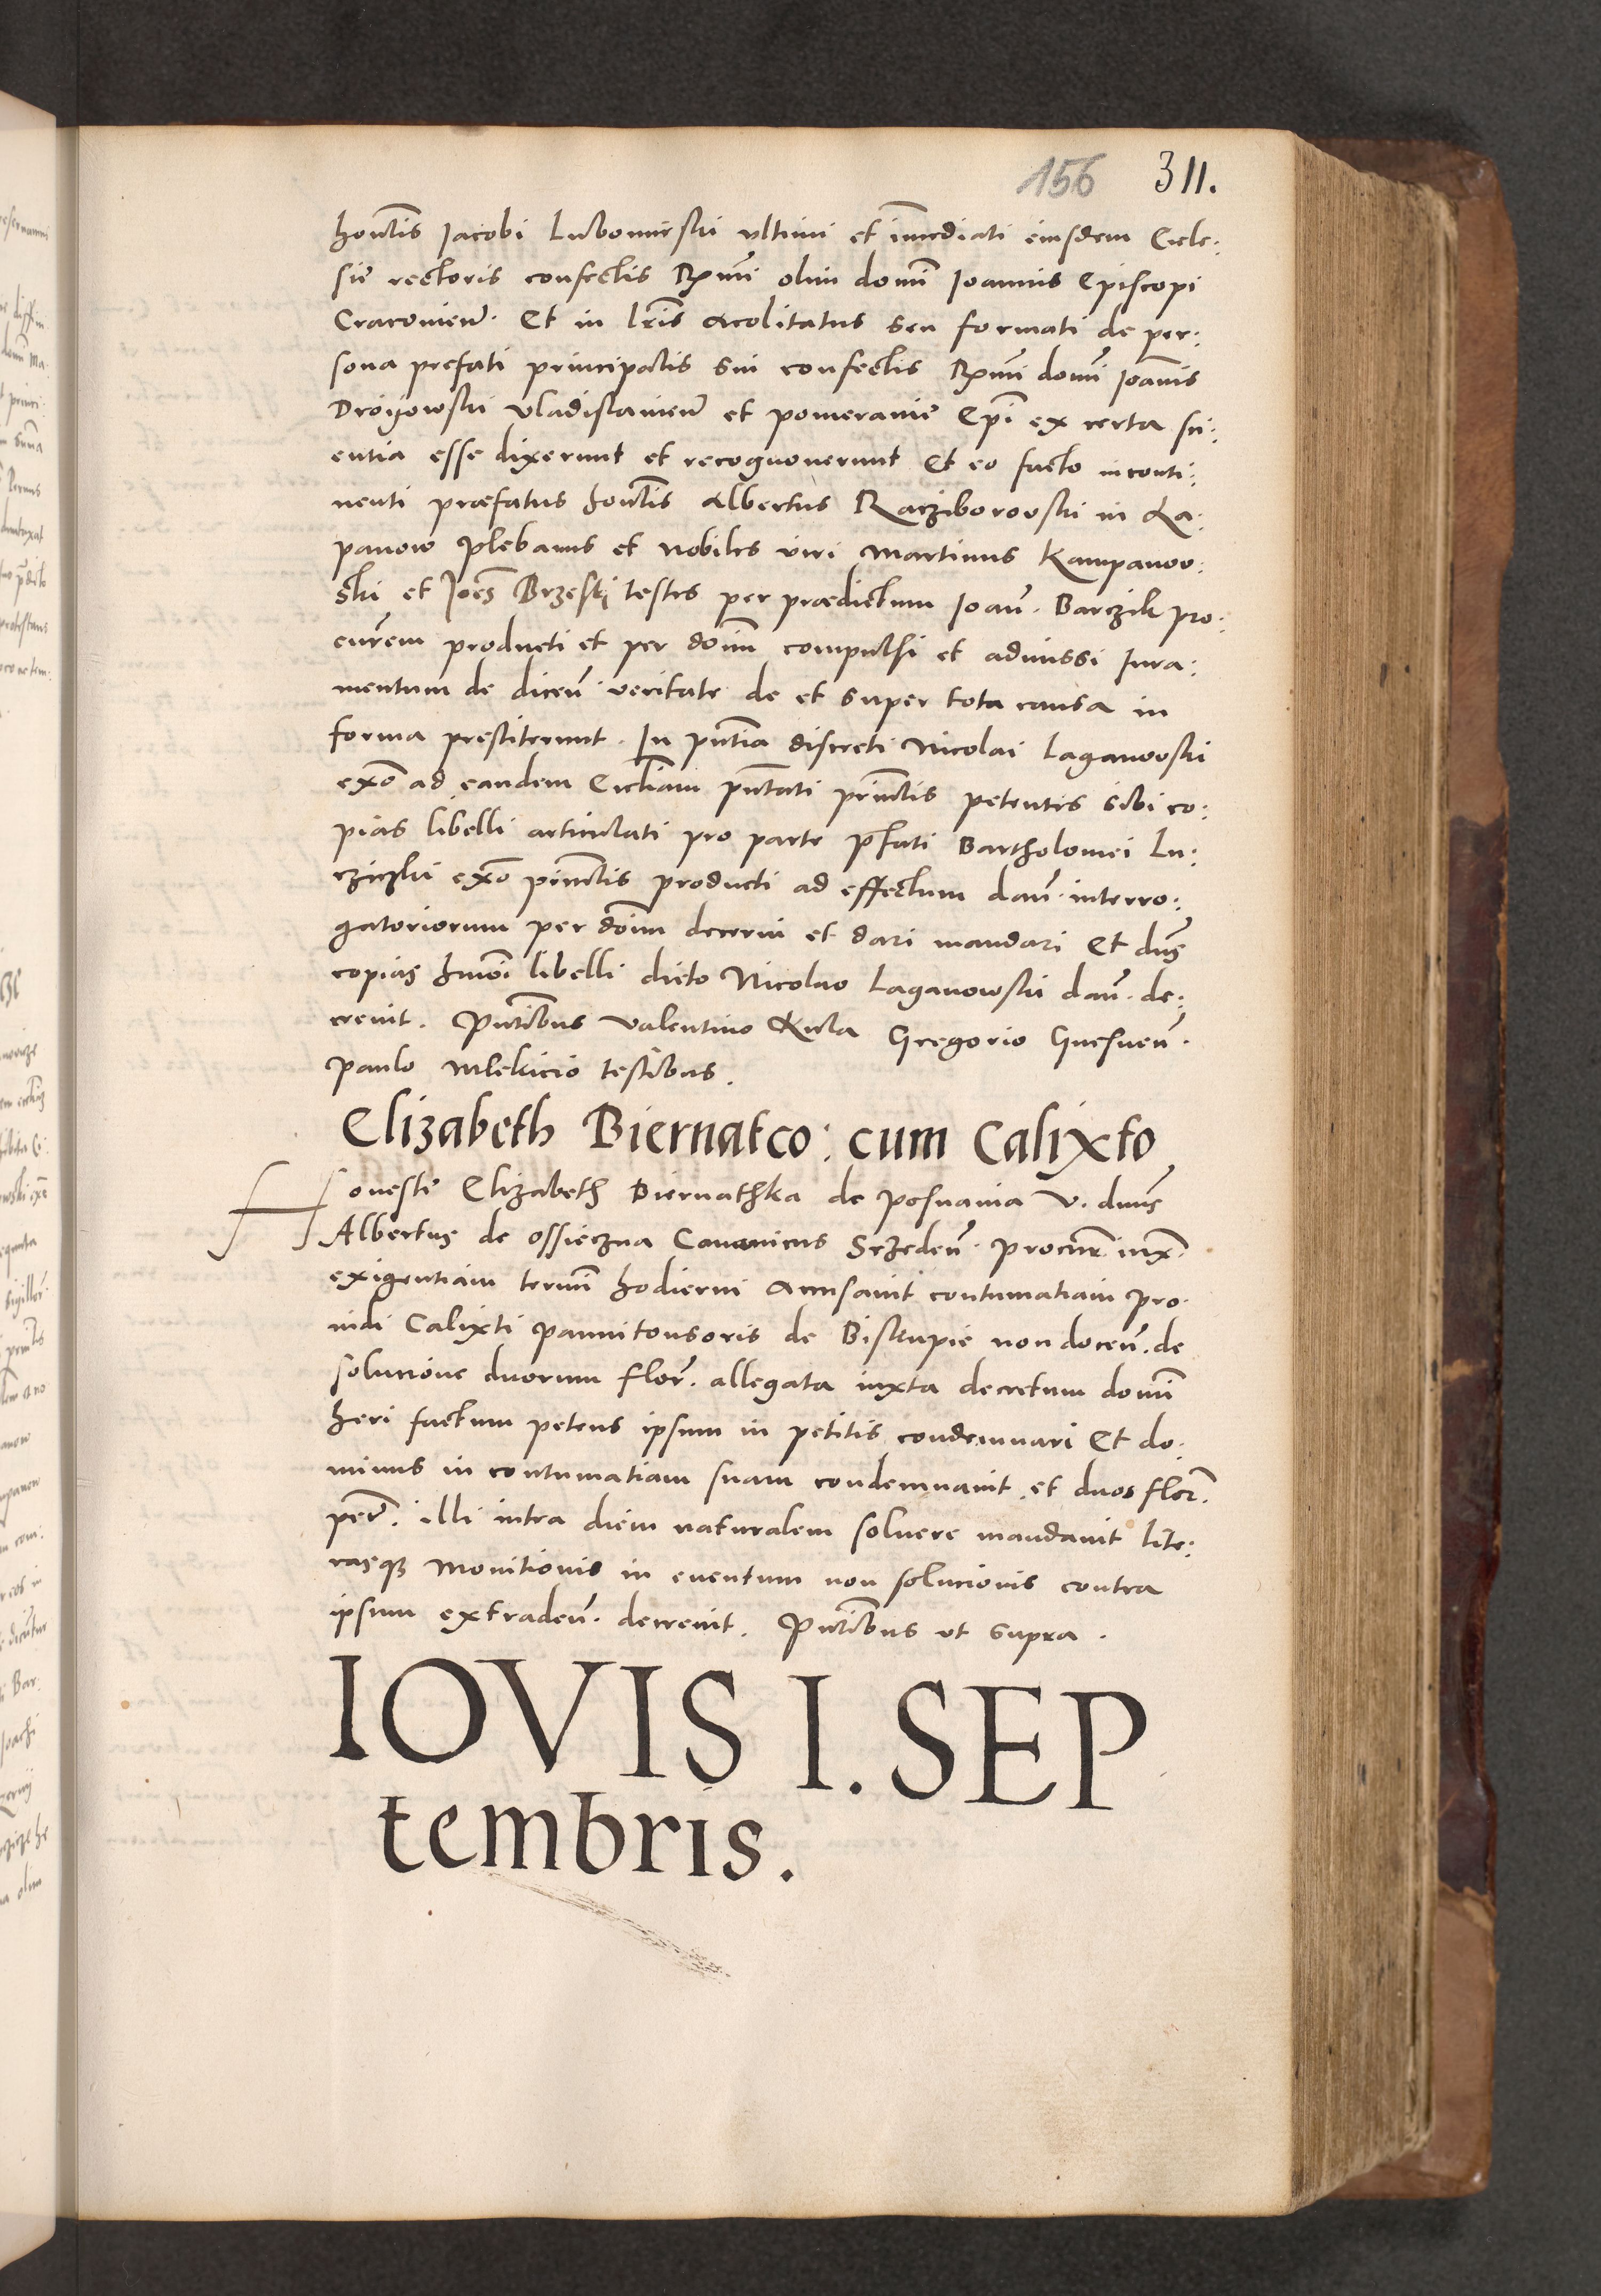 156 311.
hon̄lis Jacobi Lubomirski ultimi et im̄ediati eiusdem Eccle:
sie rectoris confectis Rx̄mi olim domī Ioannis Episcopi
Cracovieñ. Et in lr̄is acolitatus seu formati de per:
sona prefati principalis sui confectis Rx̄mi domī Ioañis
Drōyowski vladislavieñ et pomeranie Ep̄i ex certa sci:
entia esse dixerunt et recognoverunt Et eo facto inconti:
nenti præfatus hon̄lis Albertus Racziborowski in La:
panow plebanus et nobiles viri Martinus Kampanow:
ski et Joēs Brzeski testes per prædictum Ioañ. Barczik pro:
curēm producti et per dōnm compulsi et admissi Iura:
mentum de diceñ veritate de et super tota causa in
forma prestiterunt. In pn̄tia discreti Nicolai Laganowski
ex̄o ad eandem Eccl̄iam pn̄tati prin̄lis petentis sibi co:
pias libelli articulati pro parte p̄fati Bartholomei Lu:
cziczki ex̄o prin̄lis producti ad effectum dañ. interro:
gatoriorum per dōnm decerni et dari mandari Et dn̄s
copias hmōi libelli dicto Nicolao Laganowski dañ. de:
crevit. Pn̄tibus Valentino Kula Gregorio Gnesneñ.
Paulo Mlekicio testibus.
Elizabeth Biernatco: cum Calixto
Honeste Elizabeth Biernathka de Posnania V. dn̄us
Albertus de Ossieczna Canonicus Srzedeñ. procur̄. iux̄.
exigentiam termī hodierni accusavit contumatiam pro.
vidi Calixti pannitonsoris de Biskupie non doceñ. de
solucione duorum flor̄. allegata iuxta decretum domī
heri factum petens ipsum in petitis condemnari Et do.
minus in contumatiam suam condemnavit et duos flor̄.
per̄. illi intra diem naturalem solvere mandavit lite:
rasq3 monitionis in eventum non solucionis contra
ipsum extradeñ. decrevit. Pn̄tibus ut supra.
IOVIS I. SEP
tembris.